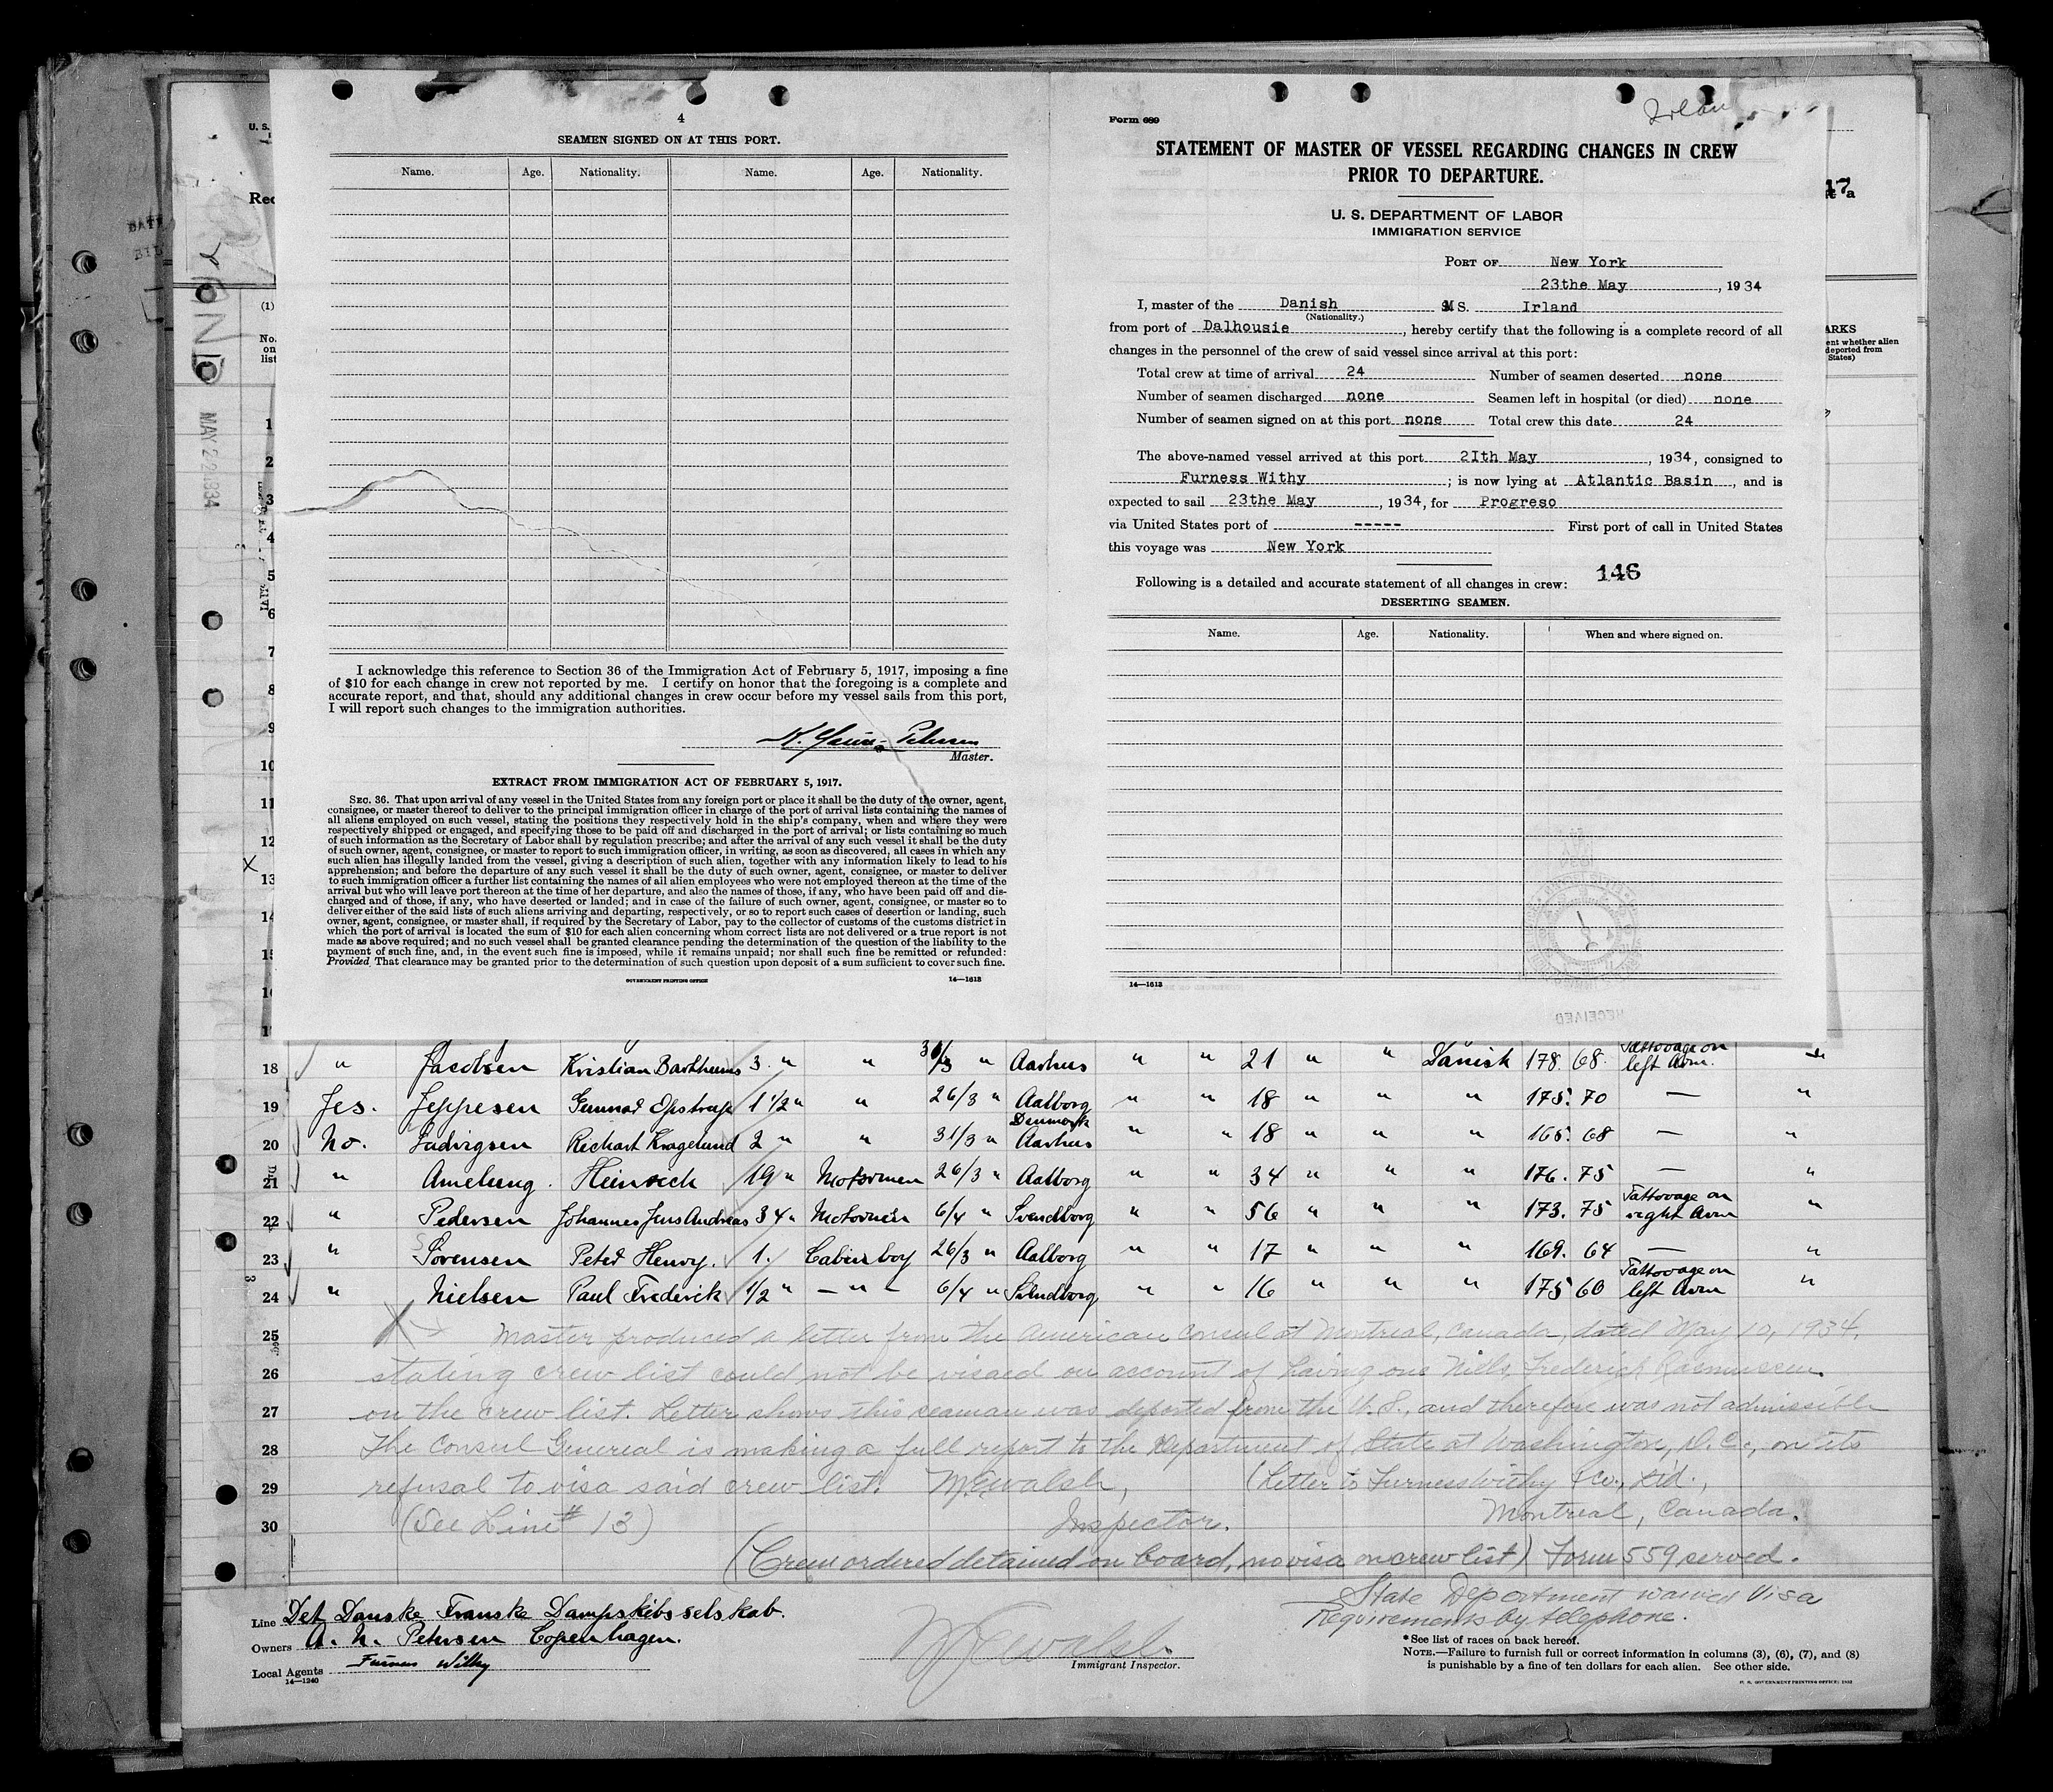 4
SEAMEN SIGNED ON AT THIS PORT.
Name. Age. Nationality. Name. Age. Nationality.
I acknowledge this reference to Section 36 of the Immigration Act of February 5, 1917, imposing a fine
of $10 for each change in crew not reported by me. I certify on honor that the foregoing is a complete and
accurate report, and that, should any additional changes in crew occur before my vessel sails from this port,
I will report such changes to the immigration authorities.
Petersen
Master.
EXTRACT FROM IMMIGRATION ACT OF FEBRUARY 5, 1917.
SEC. 36. That upon arrival of any vessel in the United States from any foreign port or place it shall be the duty of the owner, agent,
consignee, or master thereof to deliver to the principal immigration officer in charge of the port of arrival lists containing the names of
all aliens employed on such vessel, stating the positions they respectively hold in the ship's company, when and where they were
respectively shipped or engaged, and specifying those to be paid off and discharged in the port of arrival; or lists containing so much
of such information as the Secretary of Labor shall by regulation prescribe; and after the arrival of any such vessel it shall be the duty
of such owner, agent, consignee, or master to report to such immigration officer, in writing, as soon as discovered, all cases in which any
such alien has illegally landed from the vessel, giving a description of such alien, together with any information likely to lead to his
apprehension; and before the departure of any such vessel it shall be the duty of such owner, agent, consignee, or master to deliver
to such immigration officer a further list containing the names of all alien employees who were not employed thereon at the time of the
arrival but who will leave port thereon at the time of her departure, and also the names of those, if any, who have been paid off and dis-
charged and of those, if any, who have deserted or landed; and in case of the failure of such owner, agent, consignee, or master so to
deliver either of the said lists of such aliens arriving and departing, respectively, or so to report such cases of desertion or landing, such
owner, agent, consignee, or master shall, if required by the Secretary of Labor, pay to the collector of customs of the customs district in
which the port of arrival is located the sum of $10 for each alien concerning whom correct lists are not delivered or a true report is not
made as above required; and no such vessel shall be granted clearance pending the determination of the question of the liability to the
payment of such fine, and, in the event such fine is imposed, while it remains unpaid; nor shall such fine be remitted or refunded:
Provided, That clearance may be granted prior to the determination of such question upon deposit of a sum sufficient to cover such fine.
GOVERNMENT PRINTING OFFICE 14—1613
Form 689
STATEMENT OF MASTER OF VESSEL REGARDING CHANGES IN CREW
PRIOR TO DEPARTURE.
U. S. DEPARTMENT OF LABOR
IMMIGRATION SERVICE
PORT OF New York
23the May, 1934
I, master of the Danish MS. Irland
(Nationality.)
from port of Dalhousie, hereby certify that the following is a complete record of all
changes in the personnel of the crew of said vessel since arrival at this port:
Total crew at time of arrival 24 Number of seamen deserted none
Number of seamen discharged none Seamen left in hospital (or died) none
Number of seamen signed on at this port none Total crew this date 24
The above-named vessel arrived at this port 2Ith May, 1934, consigned to
Furness Withy; is now lying at Atlantic Basin, and is
expected to sail 23the May, 1934, for Progreso
via United States port of ----- First port of call in United States
this voyage was New York
Following is a detailed and accurate statement of all changes in crew: 146
DESERTING SEAMEN.
Name. Age. Nationality. When and where signed on.
14—1613
RECEIVED
MAY 22 1934
18 " Jacobsen Kristian 3 " " " Aarhus " " 21 " " Danish 178. 68. Tattovage on left Arm. "
19 Jes. Jeppesen 1 1/2 " " 26/3 " Aalborg " " 18 " " " 175. 70 — "
20 No. Ludvigsen Richart Kragelund 2 " " 31/3 " Denmark Aarhus " " 18 " " " 165. 68 — "
21 " Amelung. Heinrich 19 " Motormen 26/3 " Aalborg " " 34 " " " 176. 75 — "
22 " Pedersen Johannes Jens Andreas 34 " Motormen 6/4 " Svendborg " " 56 " " " 173. 75 Tattovage on right Arm "
23 " Sørensen Peter Henry. 1. Cabin boy 26/3 " Aalborg " " 17 " " " 169. 64 — "
24 " Nielsen Paul Frederick 1/2 " — " — 6/4 " Svendborg " " 16 " " " 175 60 Tattovage on left Arm "
25 X Master produced a letter from the American Consul at Montreal, Canada, dated May 10, 1934,
26 stating crew list could not be visaed on account of having one Niels Frederick Rasmussen
27 on the crew list. Letter shows this seaman was deported from the U.S., and therefore was not admissible
28 The Consul General is making a full report to the Department of State at Washington, D.C., on its
29 refusal to visa said crew list. Walsh, (Letter to Furness Withy & Co., Ltd.,
30 (See Line # 13) Inspector. Montreal, Canada.
(Crew ordered detained on board, no visa on crew list) Form 559 served.
State Department waived Visa
Requirements by telephone.
Line Det Danske Franske Dampskibsselskab.
Owners A. N. Petersen Copenhagen.
Local Agents Furness Withy
14—1240
Walsh
Immigrant Inspector.
*See list of races on back hereof.
NOTE.—Failure to furnish full or correct information in columns (3), (6), (7), and (8)
is punishable by a fine of ten dollars for each alien. See other side.
U. S. GOVERNMENT PRINTING OFFICE: 1932